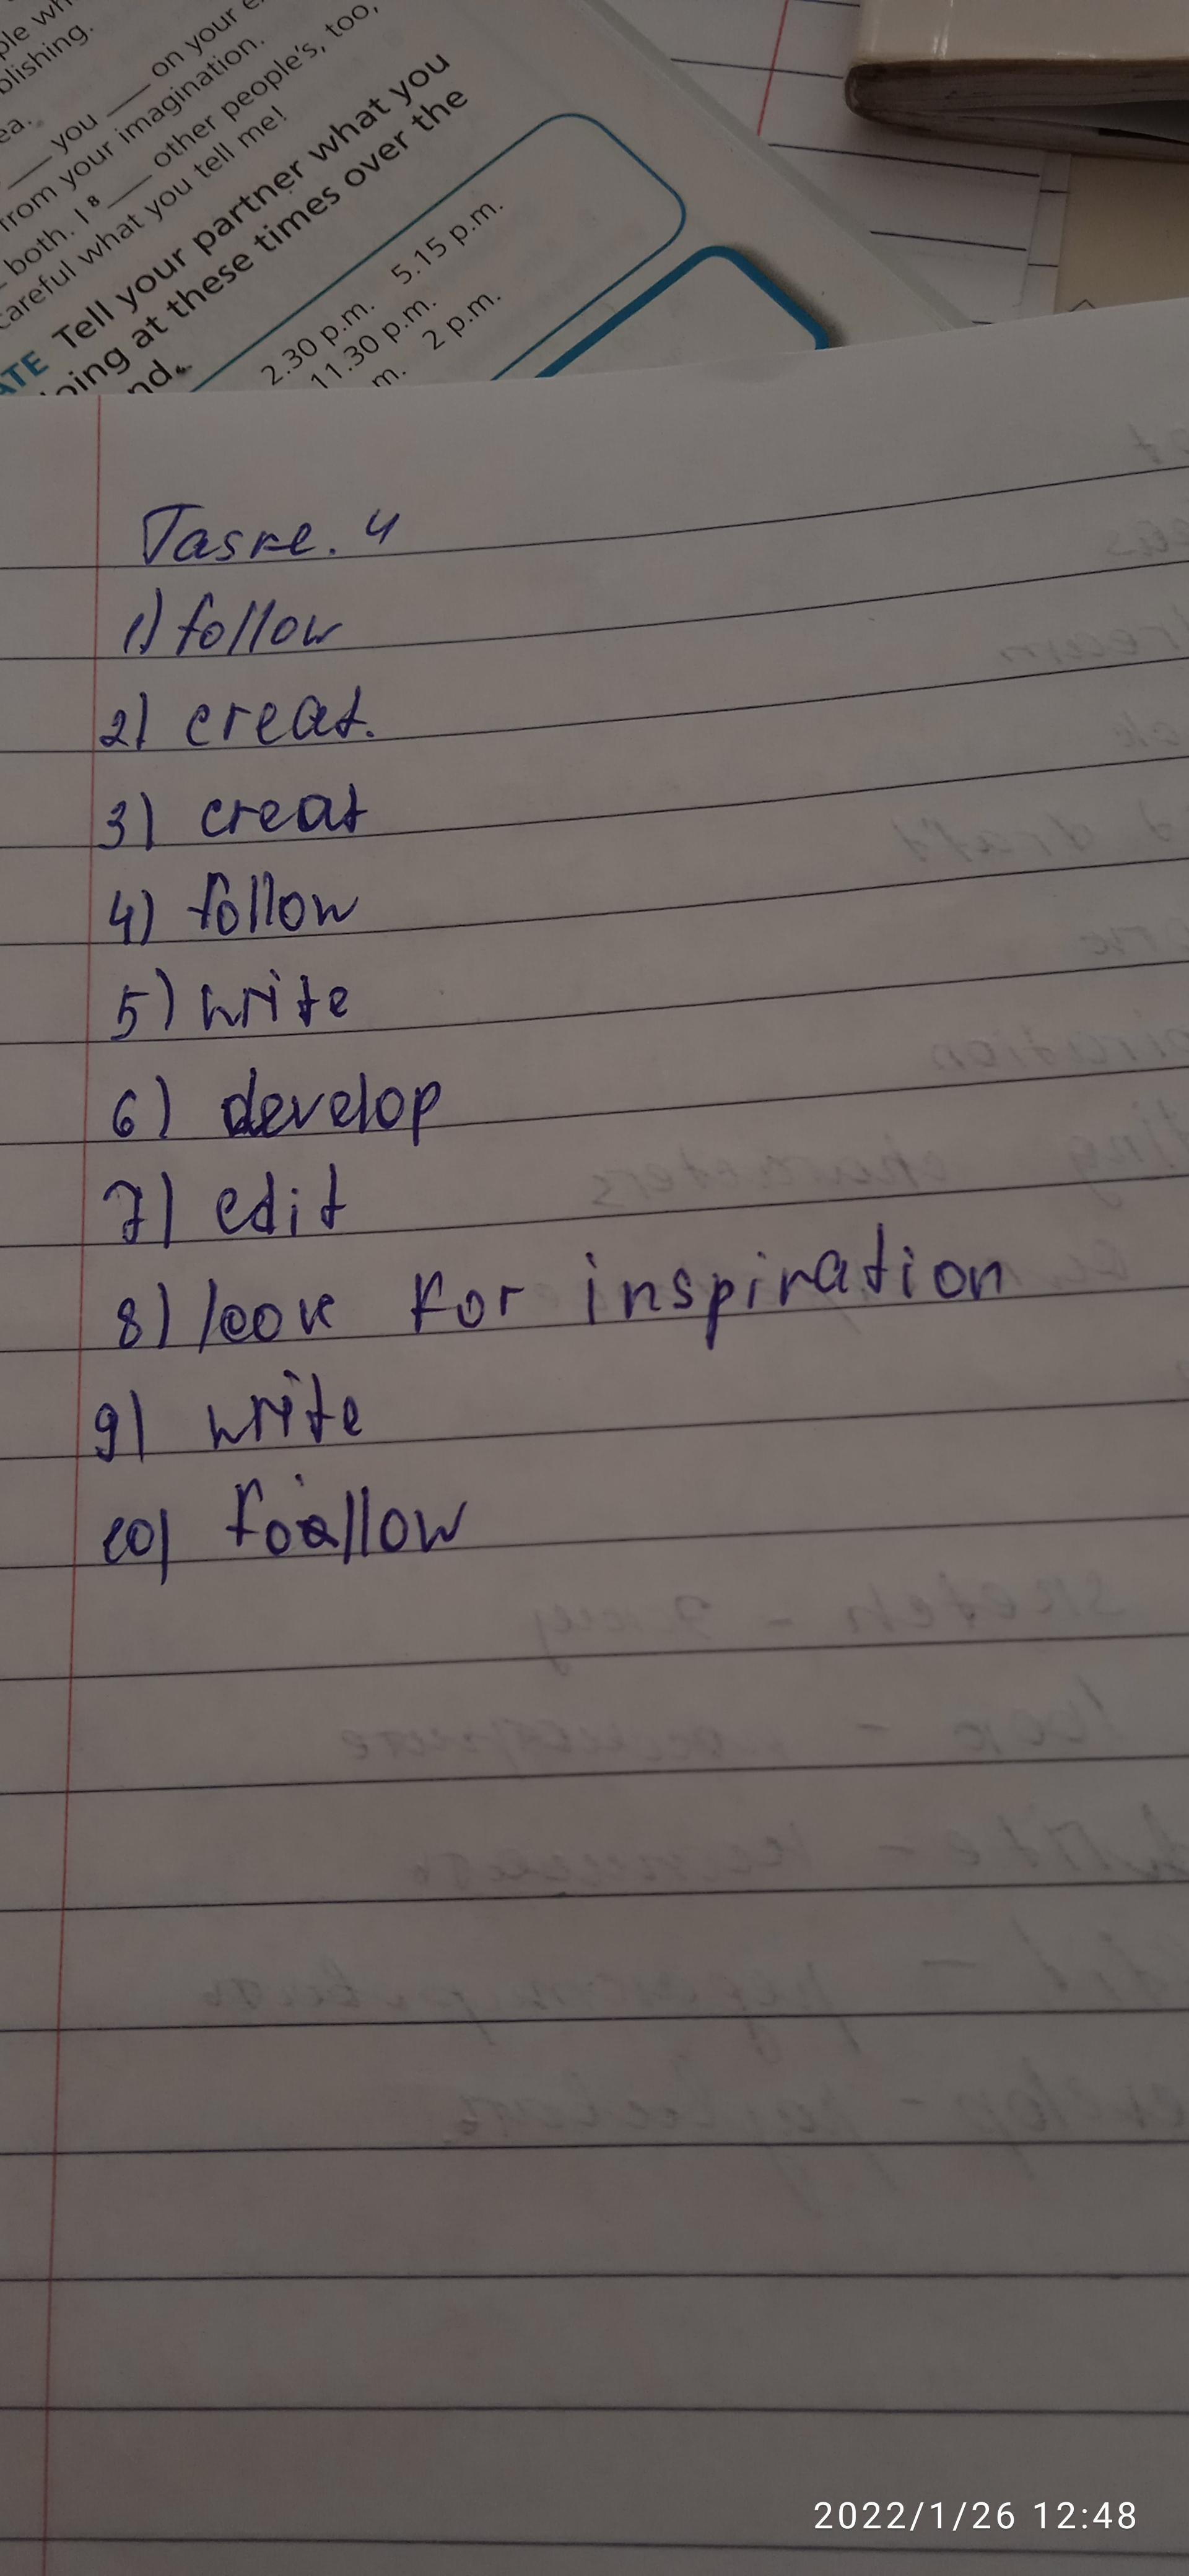 ple wh
blishing.
ea.
you ___ on your e
from your imagination.
both. I 8 ___ other people's, too,
careful what you tell me!
ATE Tell your partner what you
oing at these times over the
nd.
2.30 p.m. 5.15 p.m.
11.30 p.m.
m. 2 p.m.
Taske. 4
1) follow
2) creat.
3) creat
4) follow
5) write
6) develop
7) edit
8) look for inspiration
9) write
10) foollow
2022/1/26 12:48